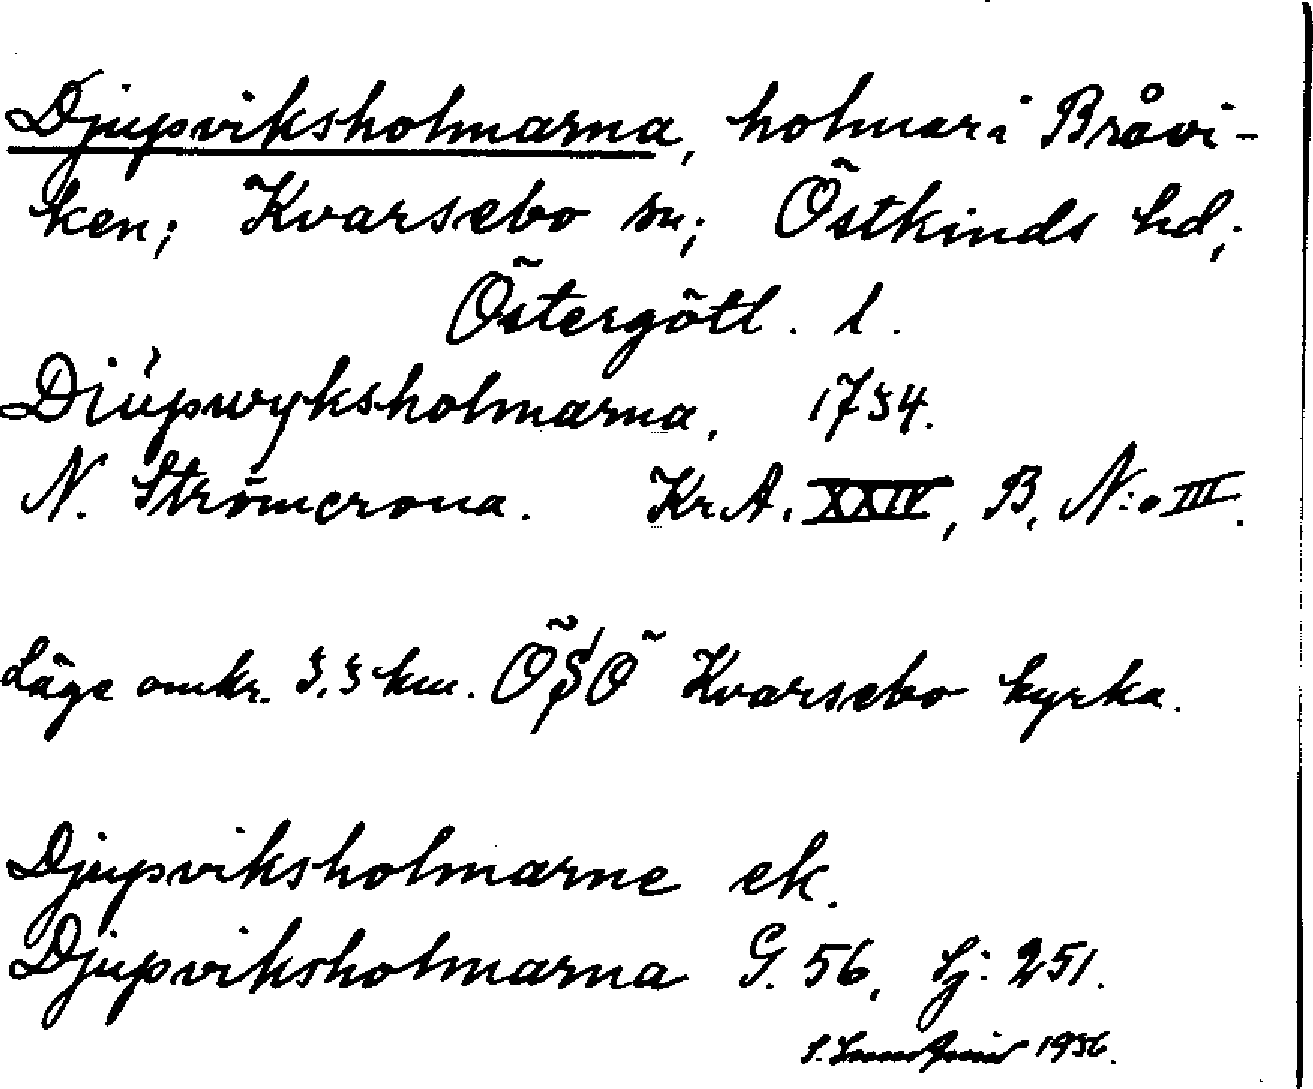 Djupviksholmarna, holmar i Bråvi-
ken; Kvarsebo sn; Östkinds hd;
Östergötl. l.
Diúpwyksholmarna, 1734.
N. Strömcrona. Kr. A. XXIV, B, N:o III.
Läge omkr. 3.3 km. ÖSÖ Kvarsebo kyrka.
Djupviksholmarne ek.
Djupviksholmarna G. 56, Sj: 251.
1936.